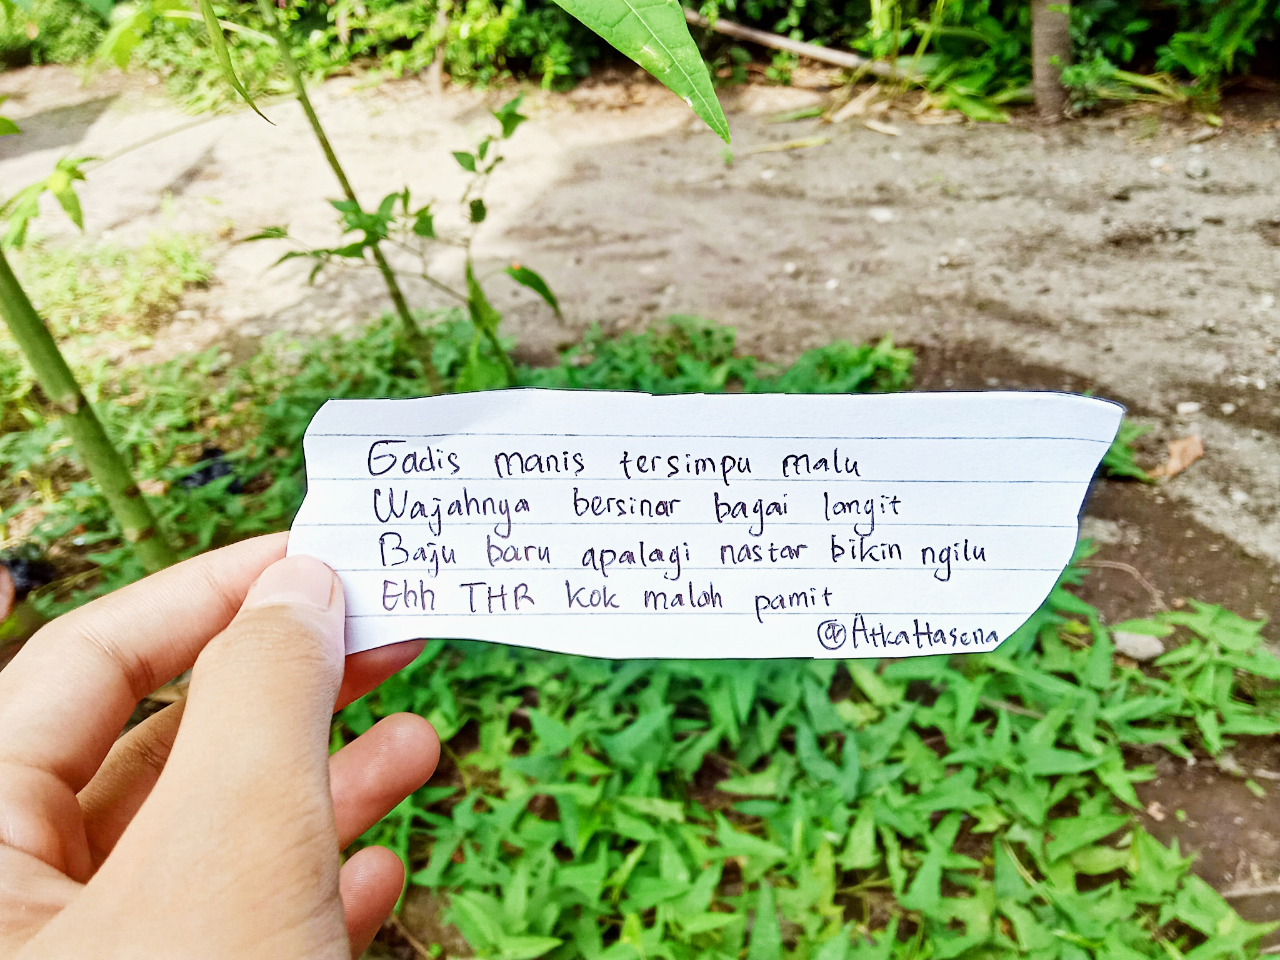 Gadis manis tersimpu malu
Wajahnya bersinar bagai langit
Baju baru apalagi nastar bikin ngilu
Ehh THR kok malah pamit
@AtkaHasena